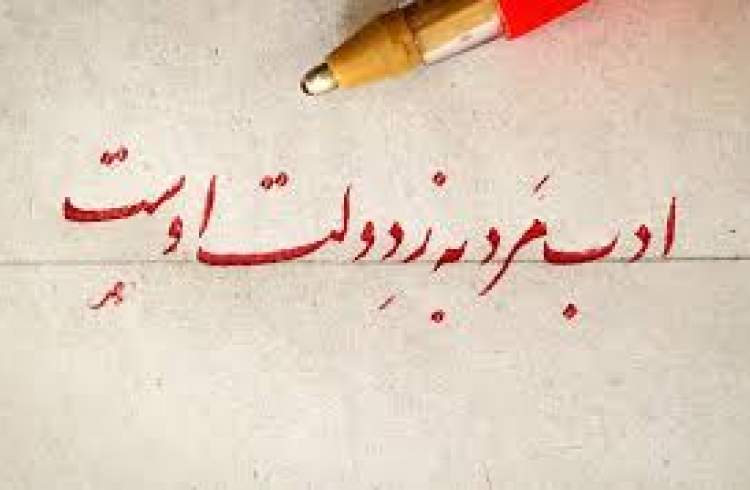 ادب مَرد به ز دِولت اوست